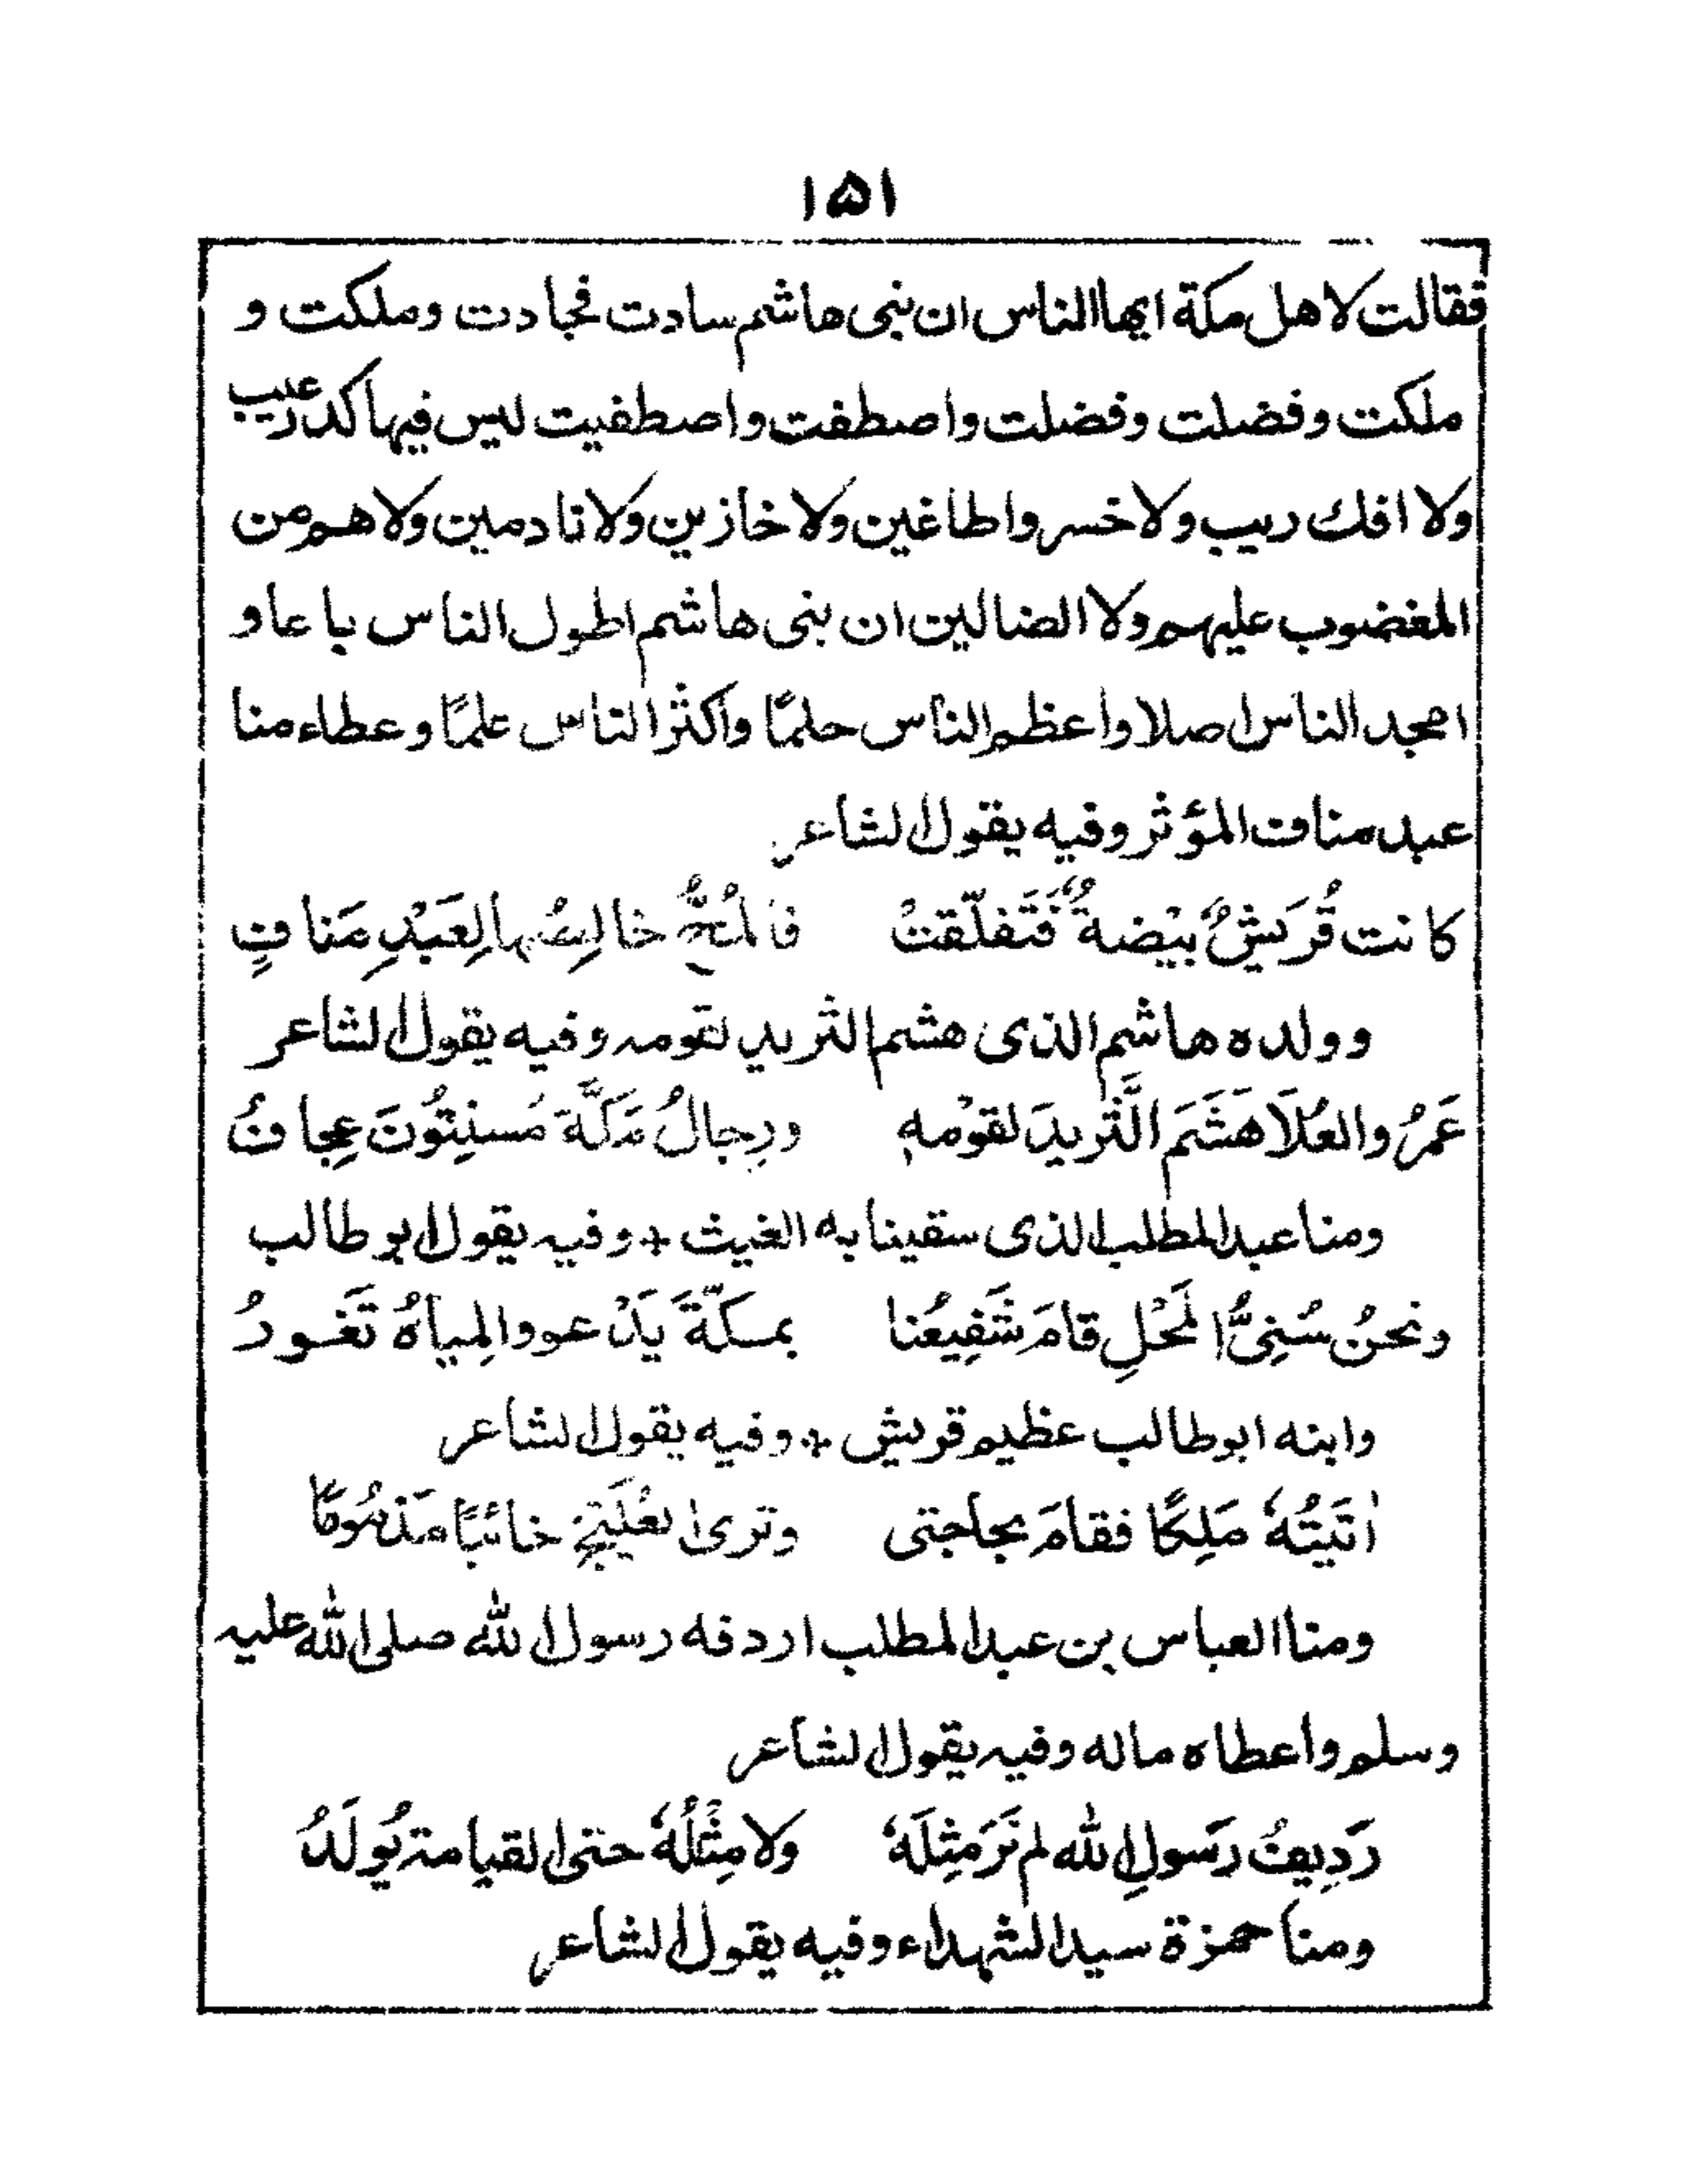 ۱۵۱
فقالت لاهل مكة ايها الناس ان بنى هاشم سادت فجادت وملكت و
ملكت وفضلت وفضلت واصطفت واصطفيت ليس فيها كدر عيب
ولا افك ريب ولا خسروا طاغين ولا خازين ولا نادمين ولا هم من
المغضوب عليهم ولا الضالين ان بنى هاشم اطول الناس باعا و
امجد الناس اصلا واعظم الناس حلمًا واكثر الناس علمًا وعطاء منا
عبد مناف المؤثر وفيه يقول الشاعر
كانت قُرَيشٌ بيْضةٌ فَتَفلّقتْ فالمُخُّ خالِصُها لِعَبْدِ مَنافٍ
وولده هاشم الذى هشم الثريد لقومه وفيه يقول الشاعر
عَمرُ والعُلَا هَشَمَ الثَّرِيدَ لقوْمهٖ ورِجالُ مَكَّةَ مُسنِتُونَ عِجافُ
ومنا عبد المطلب الذى سقينا به الغيث + وفيه يقول ابو طالب
ونحنُ سُنِىُّ المَحْلِ قامَ شَفِيعُنا بمكّةَ يَدْعو والمِياهُ تَغورُ
وابنه ابو طالب عظيم قريش + وفيه يقول الشاعر
اٰتَيْتُهٗ مَلِكًا فقامَ بحاجتى وترىٰ العُلَيّجَ خائبًا مَذمُومًا
ومنا العباس بن عبد المطلب اردفه رسول الله صلى الله عليه
وسلم واعطاه ماله وفيه يقول الشاعر
رَدِيفُ رَسولِ الله لم نَرَ مِثلَهٗ ولا مِثْلُهٗ حتى القيامة يُولَدُ
ومنا حمزة سيد الشهداء وفيه يقول الشاعر